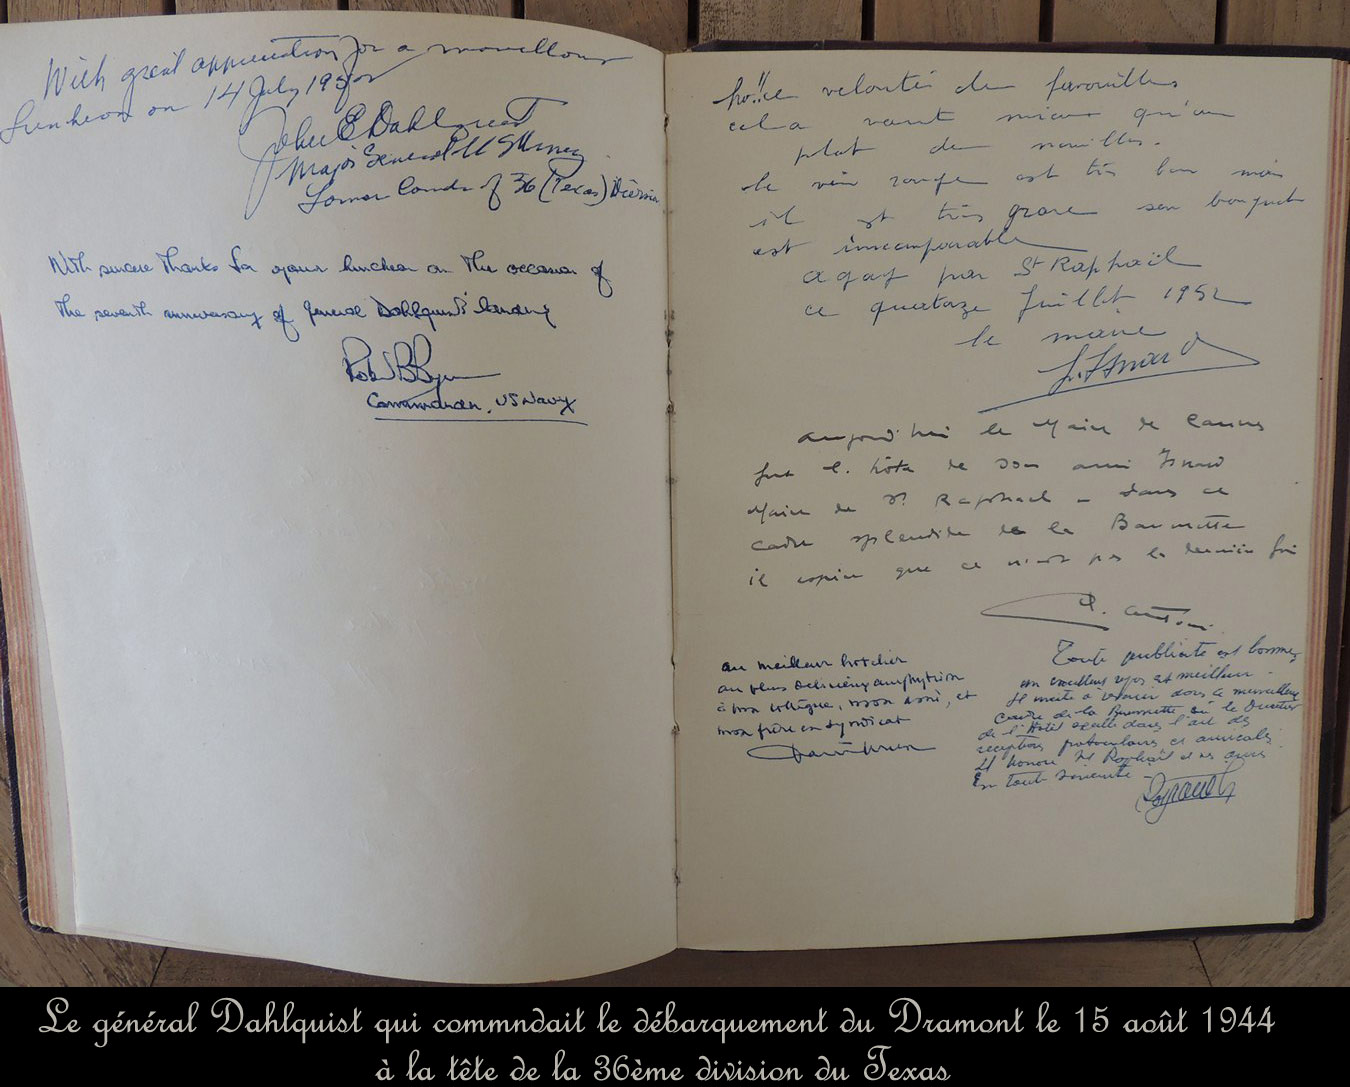 With great appreciation for a marvellous
luncheon on 14 July 195
John E Dahlquist
Major General US Army
Former Comdr of 36 (Texas) Division
With sincere thanks for your luncheon on the occasion of
the seventh anniversary of General Dahlquist's landing
Commander, US Navy
ho!! ce velouté de favouilles
cela vaut mieux qu'un
plat de nouilles.
le vin rouge est très bon mais
il est très grave son bouquet
est incomparable
agay par St Raphaël
ce quatorze Juillet 1952
le maire
L. Isnard
aujourd'hui le Maire de Cannes
fut l'hôte de son ami Isnard
Maire de St Raphael - dans ce
cadre splendide de la Baumette
il espère que ce n'est pas la dernière fois
au meilleur hotelier
au plus délicieux amphytrion
à mon collègue, mon ami, et
mon frère en syndicat
Toute publicité est bonne,
un excellent repas est meilleur.
Il incite à venir dans ce merveilleux
Cadre de la Baumette où le Directeur
de l'Hôtel excelle dans l'art des
receptions patriculaires et amicales.
Il honore St Raphaël et ses amis
En toute sincérité
Le général Dahlquist qui commndait le débarquement du Dramont le 15 août 1944
à la tête de la 36ème division du Texas